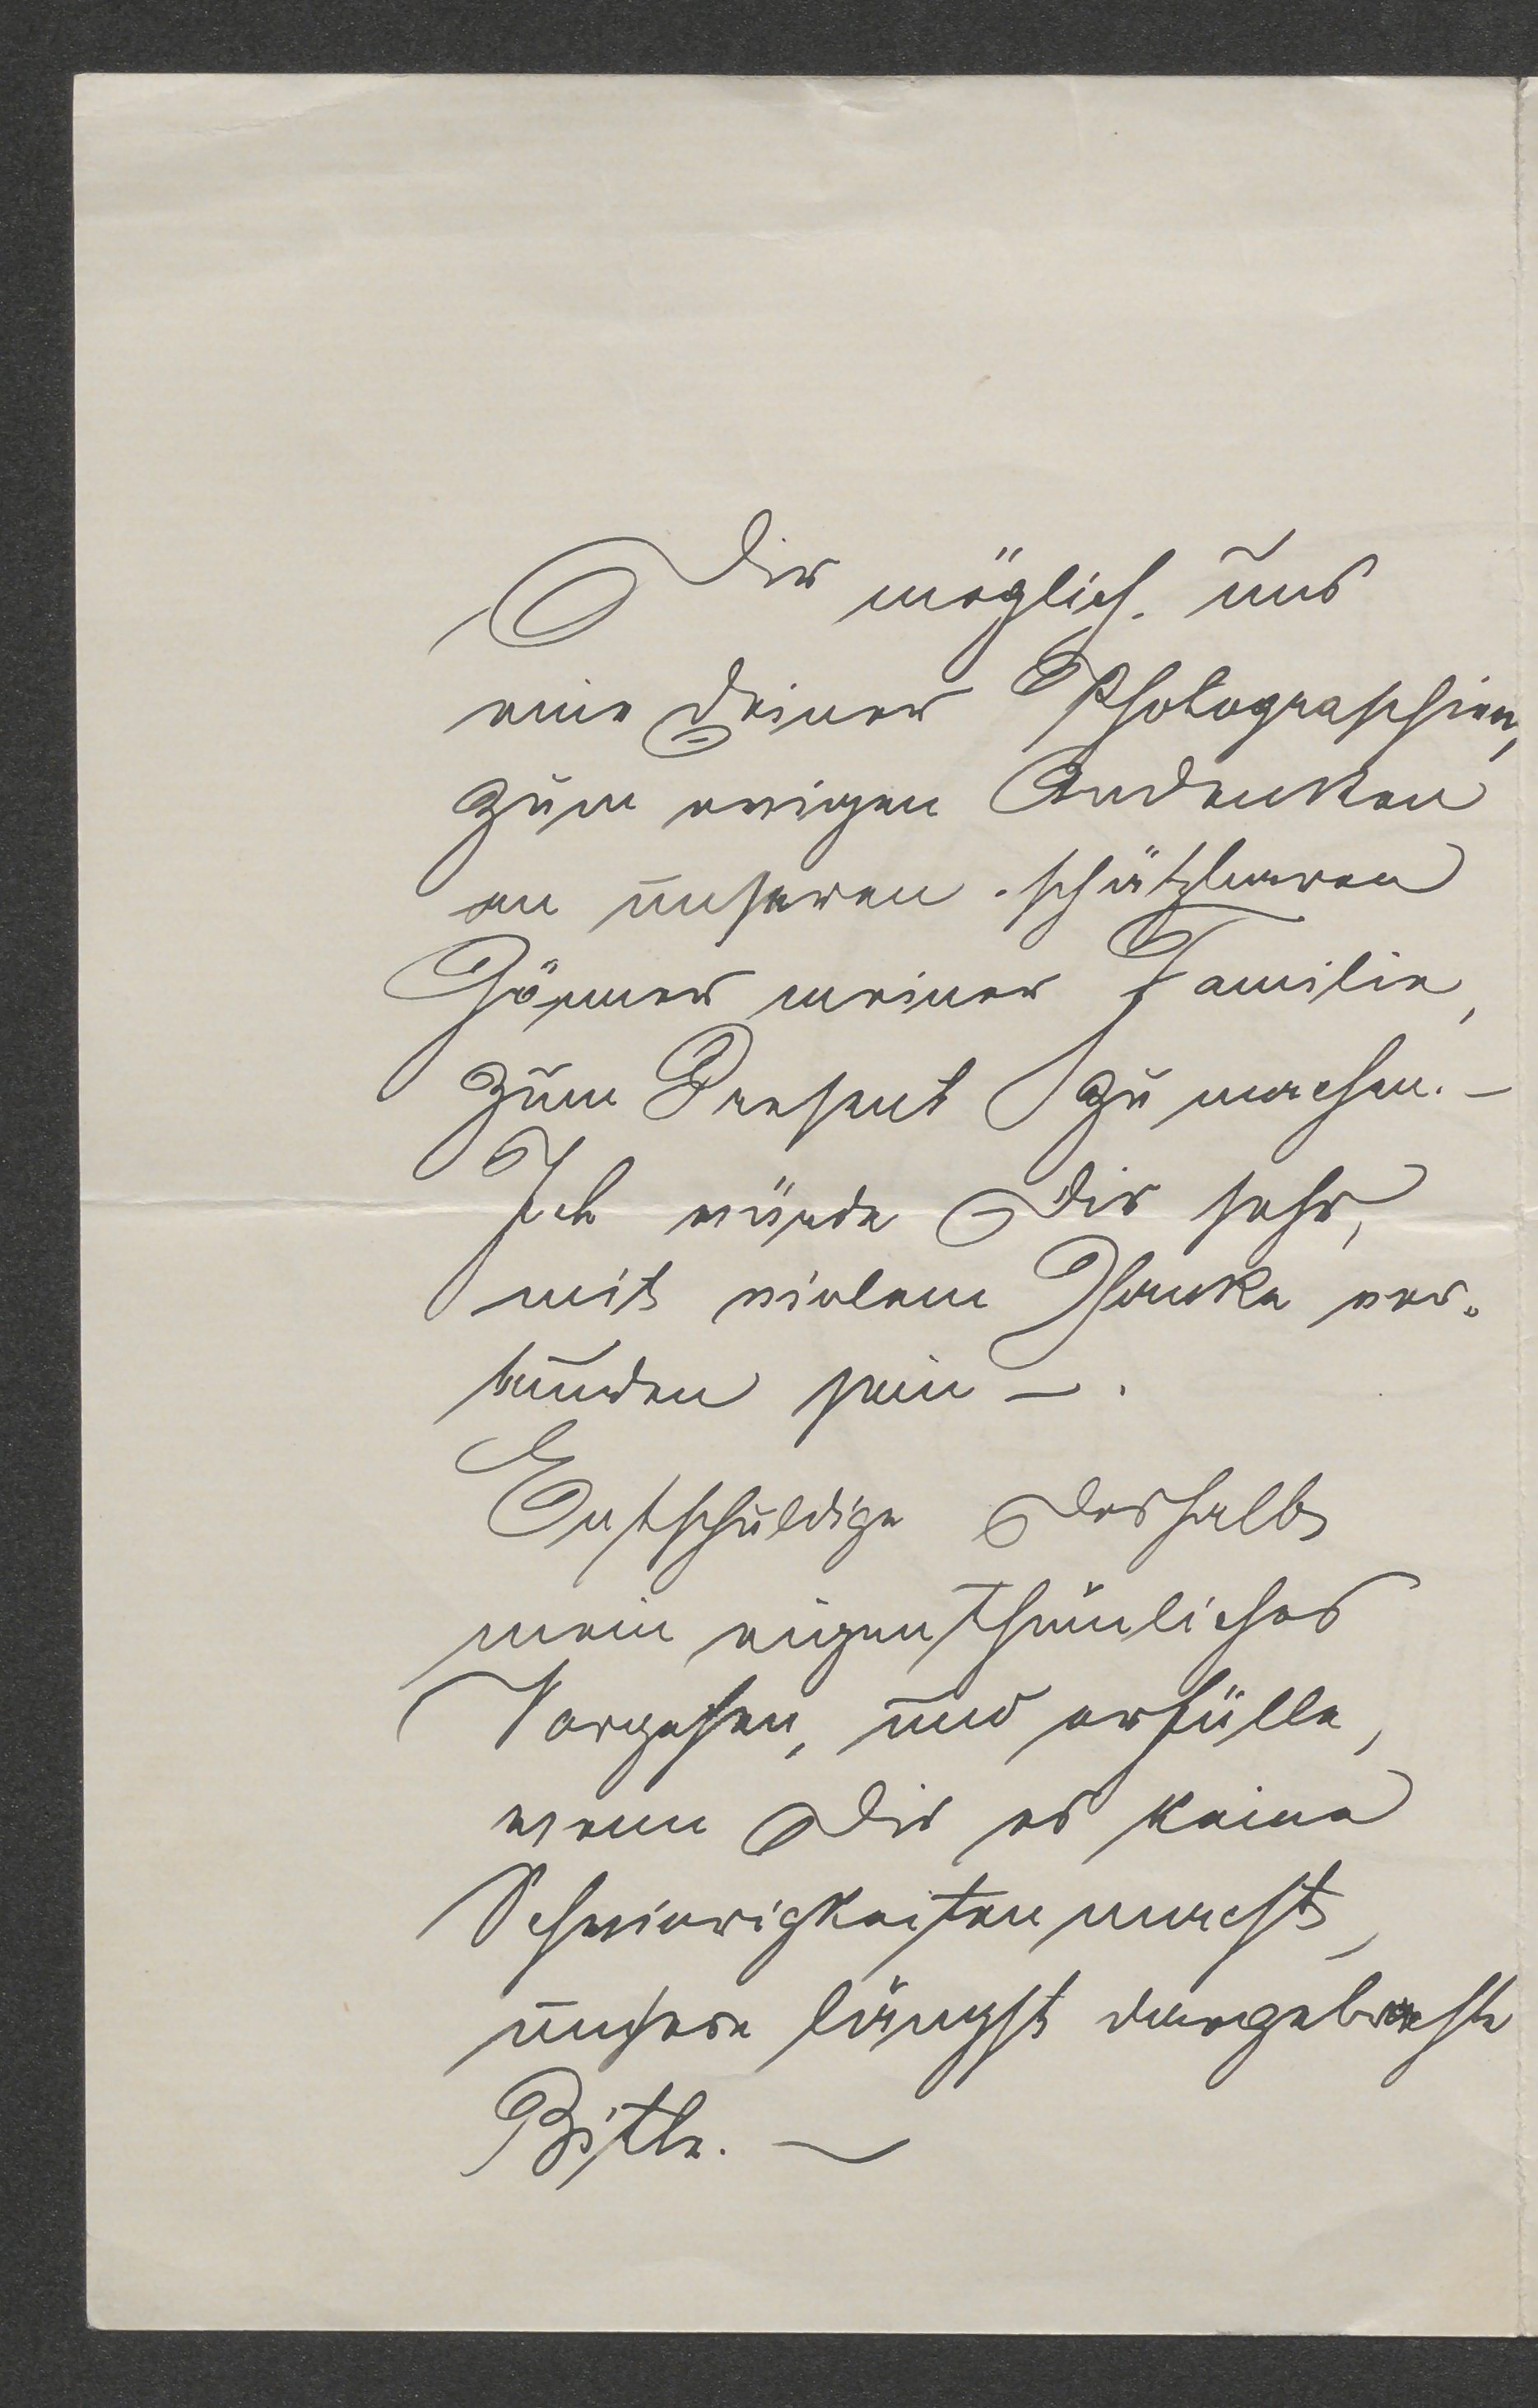 Dir möglich. uns
eine Deiner Photographien,
zum ewigen Andenken
an unseren schätzbaren
Gönner meiner Familie,
zum Present zu machen. –
Ich würde Dir sehr,
mit vielem Danke ver-
bunden sein –.
Entschuldige deshalb
mein eigenthümliches
Vorgehen, und erfülle,
wenn Dir es keine
Schwierigkeiten macht,
unsere längst dargebrachte
Bitte. –